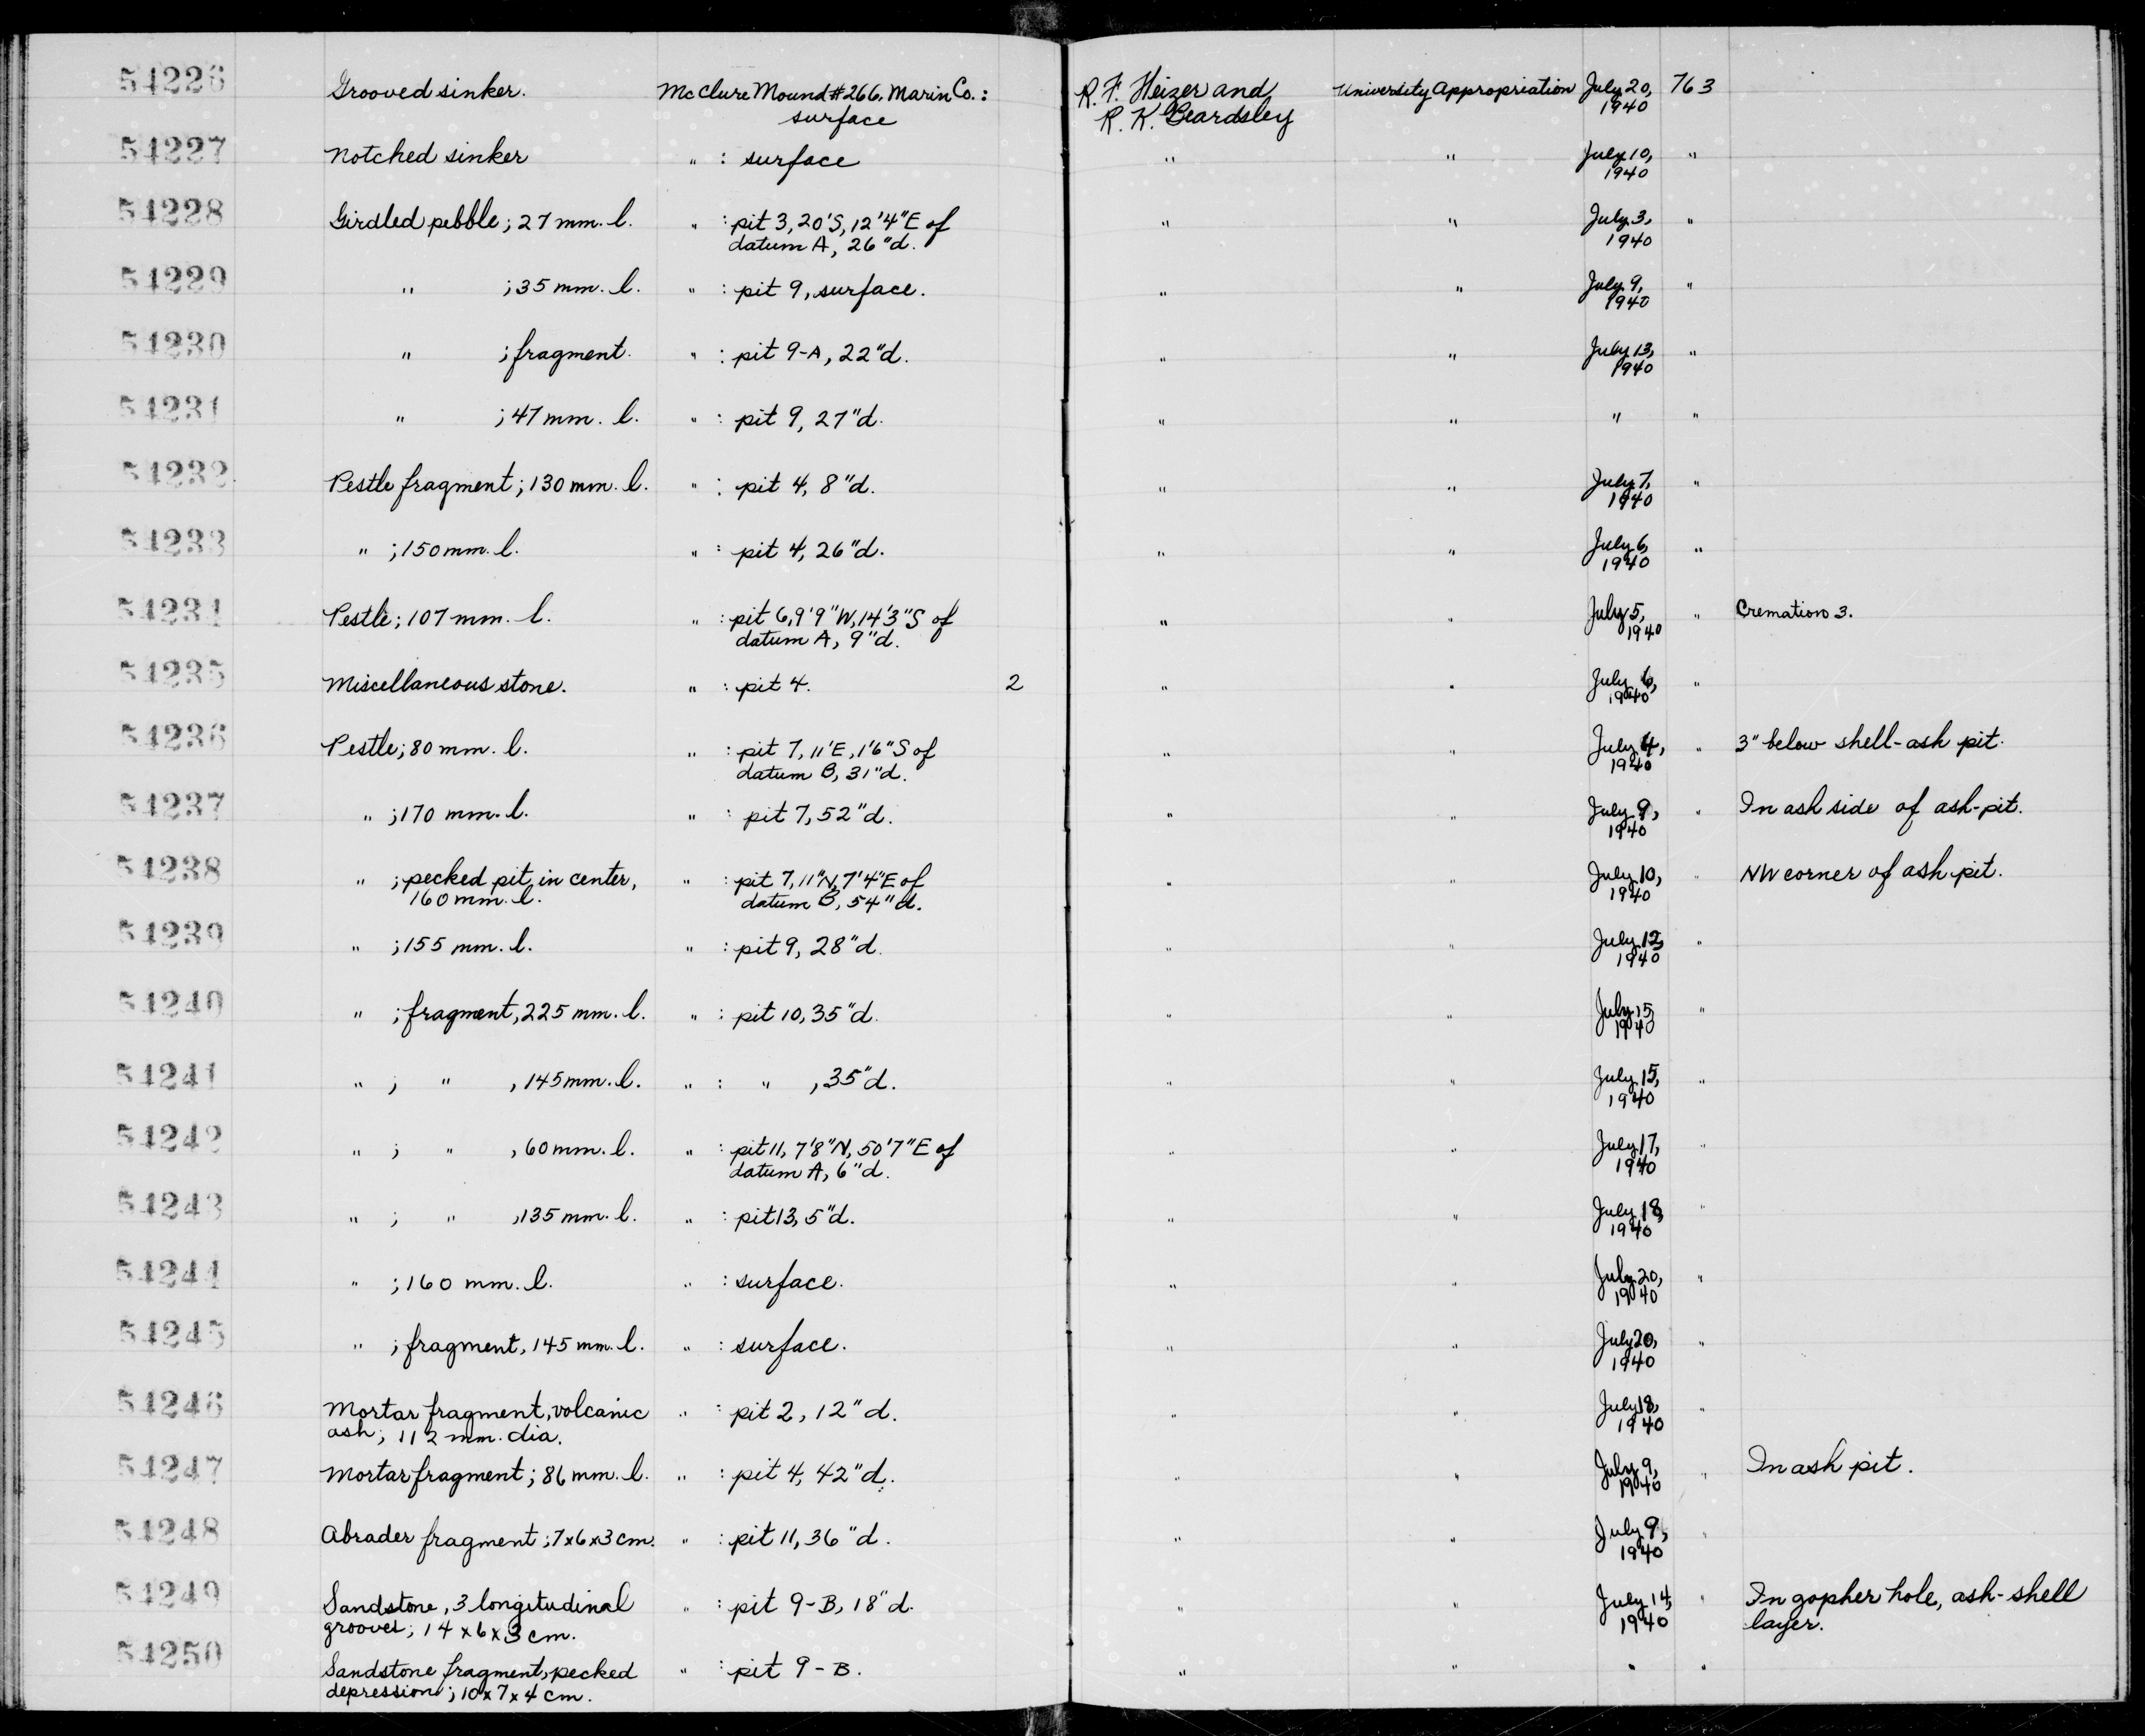 54226 Grooved sinker. McClure Mound #266, Marin Co.: R. F. Heizer and University Appropriation July 20, 763
surface R. K. Beardsley 1940
54227 Notched sinker " : surface " " July 10, "
1940
54228 Girdled pebble; 27 mm. l. " : pit 3, 20'S, 12'4"E of " " July 3, "
datum A, 26"d. 1940
54229 " ; 35 mm. l. " : pit 9, surface. " " July 9, "
1940
54230 " ; fragment. " : pit 9-A, 22"d. " " July 13, "
1940
54231 " ; 47 mm. l. " : pit 9, 27"d. " " " "
54232 Pestle fragment; 130 mm. l. " : pit 4, 8"d. " " July 7, "
1940
54233 " ; 150 mm. l. " : pit 4, 26"d. " " July 6, "
1940
54234 Pestle; 107 mm. l. " : pit 6, 9'9"W, 14'3"S of " " July 5, " Cremation 3.
datum A, 9"d. 1940
54235 Miscellaneous stone. " : pit 4. 2 " " July 6, "
1940
54236 Pestle; 80 mm. l. " : pit 7, 11'E, 1'6"S of " " July 4, " 3" below shell-ash pit.
datum B, 31"d. 1940
54237 " ; 170 mm. l. " : pit 7, 52"d. " " July 9, " In ash side of ash-pit.
1940
54238 " ; pecked pit in center, " : pit 7, 11"N, 7'4"E of " " July 10, " NW corner of ash pit.
160 mm. l. datum B, 54"d. 1940
54239 " ; 155 mm. l. " : pit 9, 28"d. " " July 12, "
1940
54240 " ; fragment, 225 mm. l. " : pit 10, 35"d. " " July 15, "
1940
54241 " ; " , 145 mm. l. " : " , 35"d. " " July 15, "
1940
54242 " ; " , 60 mm. l. " : pit 11, 7'8"N, 50'7"E of " " July 17, "
datum A, 6"d. 1940
54243 " ; " , 135 mm. l. " : pit 13, 5"d. " " July 18, "
1940
54244 " ; 160 mm. l. " : surface. " " July 20, "
1940
54245 " ; fragment, 145 mm. l. " : surface. " " July 20, "
1940
54246 Mortar fragment, volcanic " : pit 2, 12"d. " " July 18, "
ash; 112 mm. dia. 1940
54247 Mortar fragment; 86 mm. l. " : pit 4, 42"d. " " July 9, " In ash pit.
1940
54248 Abrader fragment; 7x6x3 cm. " : pit 11, 36"d. " " July 9, "
1940
54249 Sandstone, 3 longitudinal " : pit 9-B, 18"d. " " July 14, " In gopher hole, ash-shell
grooves; 14 x 6 x 3 cm. 1940 layer.
54250 Sandstone fragment, pecked " : pit 9-B. " " " "
depression; 10 x 7 x 4 cm.